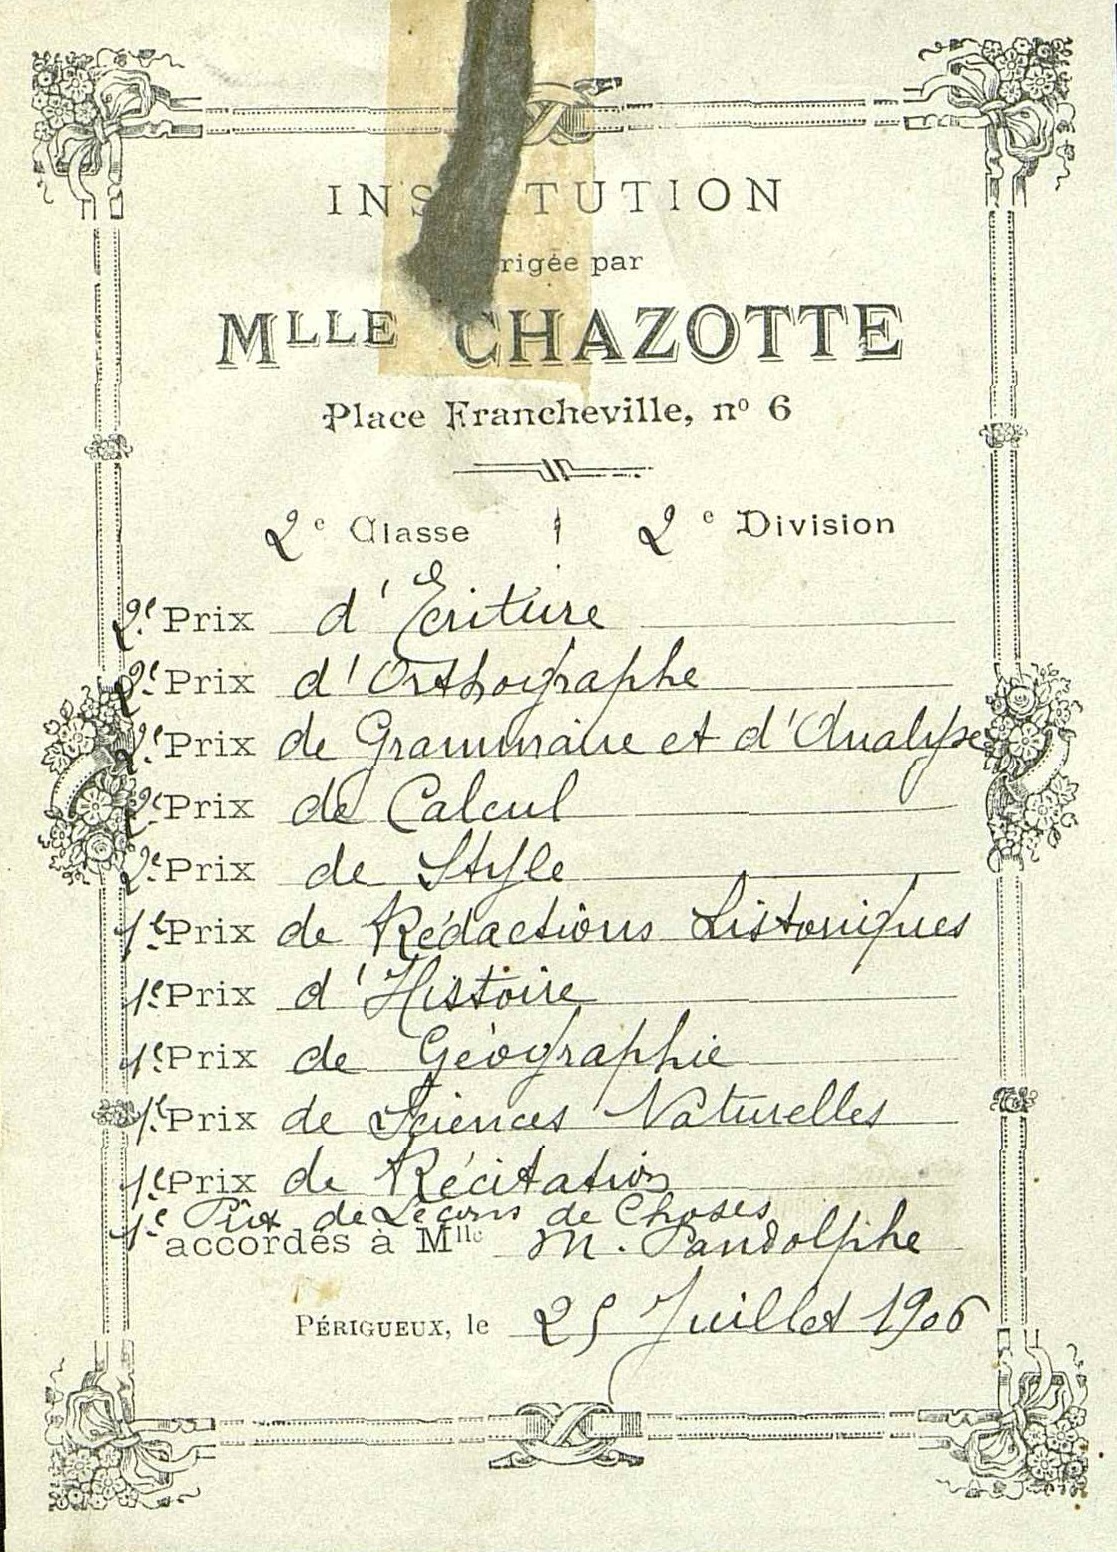 INSTITUTION
dirigée par
MLLE CHAZOTTE
Place Francheville, nº 6
2e Classe 2e Division
2e Prix d'Ecriture
2e Prix d'Orthographe
2e Prix de Grammaire et d'Analyse
2e Prix de Calcul
2e Prix de Style
1e Prix de Rédactions Historiques
1e Prix d'Histoire
1e Prix de Géographie
1e Prix de Sciences Naturelles
1e Prix de Récitation
1e Prix de Leçons de Choses
accordés à Mlle M. Pandolphe
PÉRIGUEUX, le 25 Juillet 1906